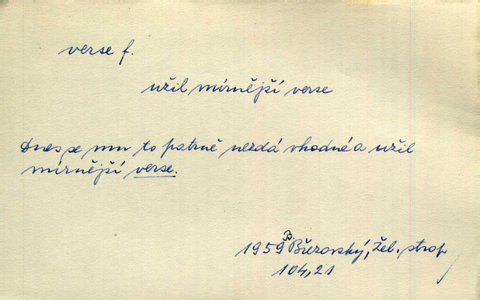 verse f.
užil mírnější verse
Dnes se mu to patrně nezdá vhodné a užil
mírnější verse.
1959 B Březovský, Žel. strop
104,21